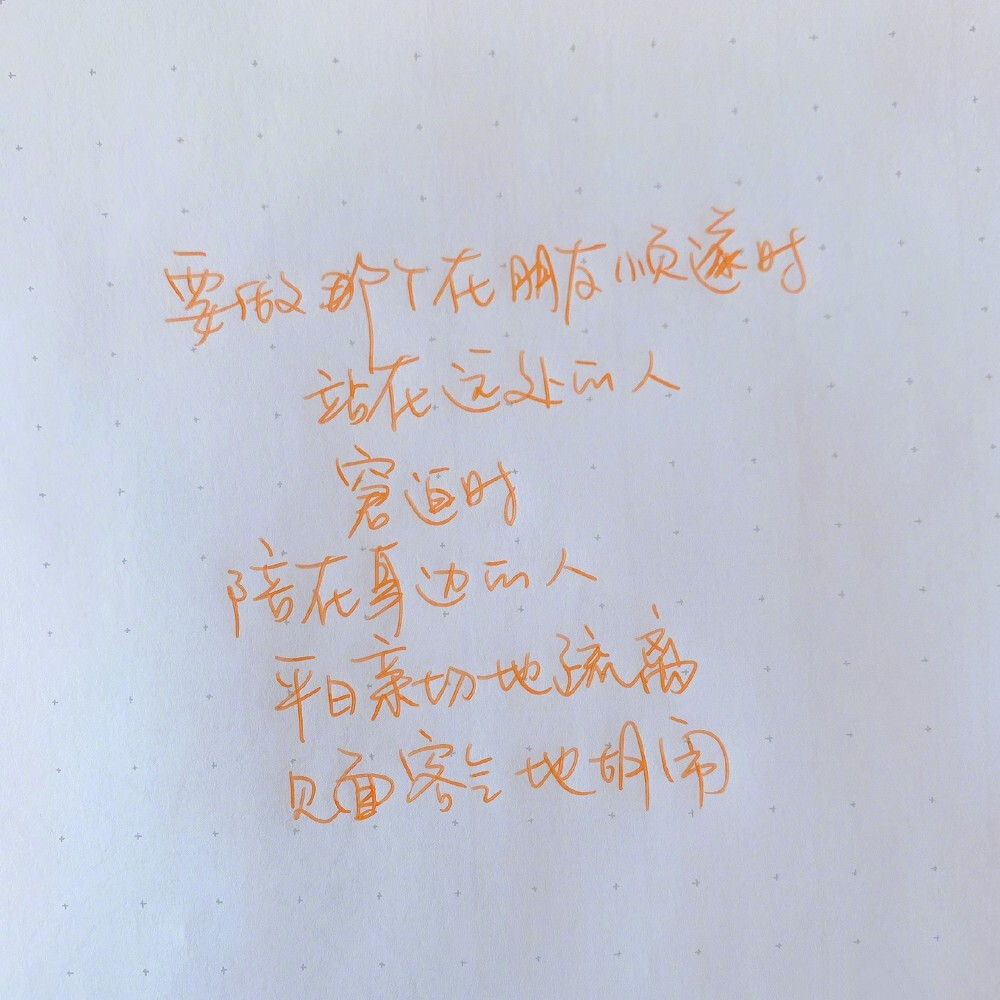 要做那个在朋友顺遂时
站在远处的人
窘迫时
陪在身边的人
平日亲切地疏离
见面客气地胡闹